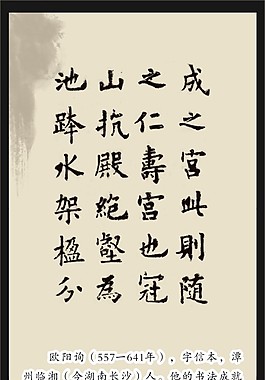 成之宮此則随
之仁壽宮也冠
山抗殿絕壑為
池跨水架楹分
欧阳询（557一641年），字信本，潭
州临湘（今湖南长沙）人。他的书法成就